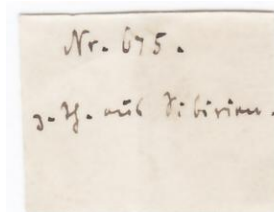 Nr. 675.
z. Th. aus Sibirien.